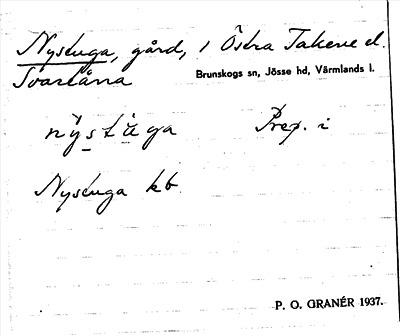 Nystuga, gård, i Östra Takene el.
Svartåna
Brunskogs sn, Jösse hd, Värmlands l.
nystuga Prep. i
Nystuga kb.
P. O. GRANÉR 1937.